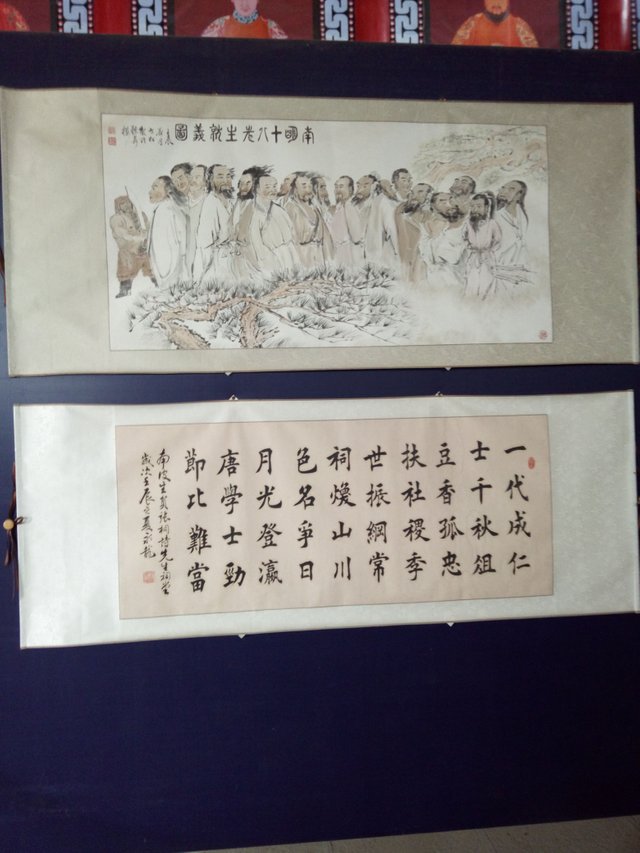 南明十八先生就義圖
一代成仁
士千秋俎
豆香孤忠
扶社稷季
世振綱常
祠煥山川
色名爭日
月光登瀛
唐學士勁
節比難當
詩先生祠堂
歲次壬辰之夏永龍